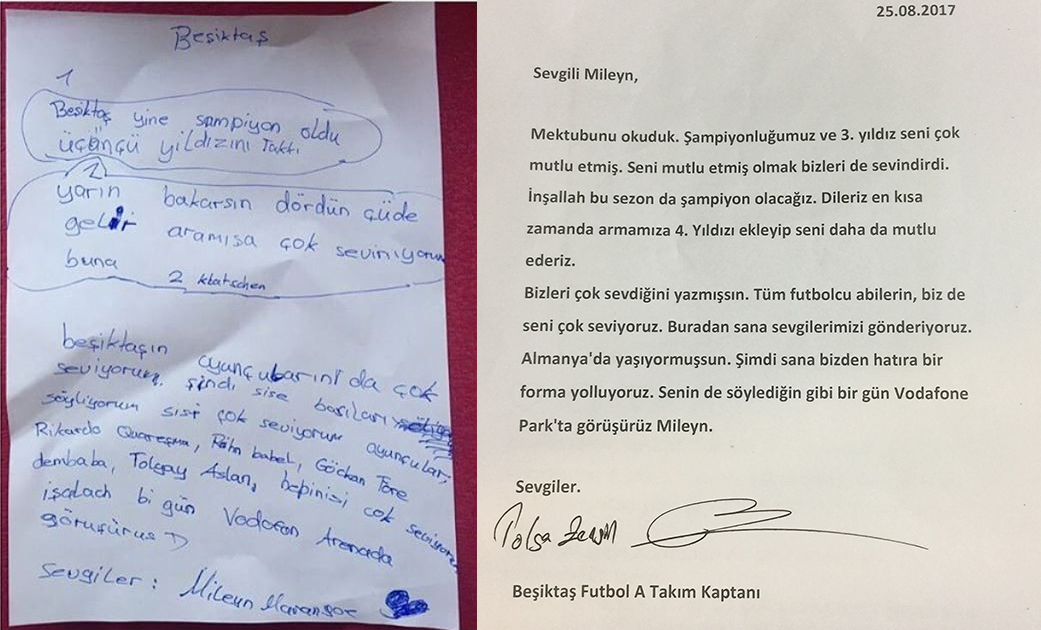 Beşiktaş
1
Beşiktaş yine sampiyon oldu
üçünçü yildizini Taktı
2
yarın bakarsın dördün çüde
gelir aramısa çok seviniyorum
buna 2 klatschen
beşiktaşın oyunçularıni da çok
seviyorum, şindi sise basıları
söyliyorum sisi çok seviyorum oyunçular,
Rikardo Quaresma, babel, Göckan Töre
dembaba, Tolgay Aslan, hepinisi cok seviyorum
işalach bi gün Vodofon Arenada
görüşürüs
Sevgiler: Mileyn
25.08.2017
Sevgili Mileyn,
Mektubunu okuduk. Şampiyonluğumuz ve 3. yıldız seni çok
mutlu etmiş. Seni mutlu etmiş olmak bizleri de sevindirdi.
İnşallah bu sezon da şampiyon olacağız. Dileriz en kısa
zamanda armamıza 4. Yıldızı ekleyip seni daha da mutlu
ederiz.
Bizleri çok sevdiğini yazmışsın. Tüm futbolcu abilerin, biz de
seni çok seviyoruz. Buradan sana sevgilerimizi gönderiyoruz.
Almanya'da yaşıyormuşsun. Şimdi sana bizden hatıra bir
forma yolluyoruz. Senin de söylediğin gibi bir gün Vodafone
Park'ta görüşürüz Mileyn.
Sevgiler.
Tolga
Beşiktaş Futbol A Takım Kaptanı